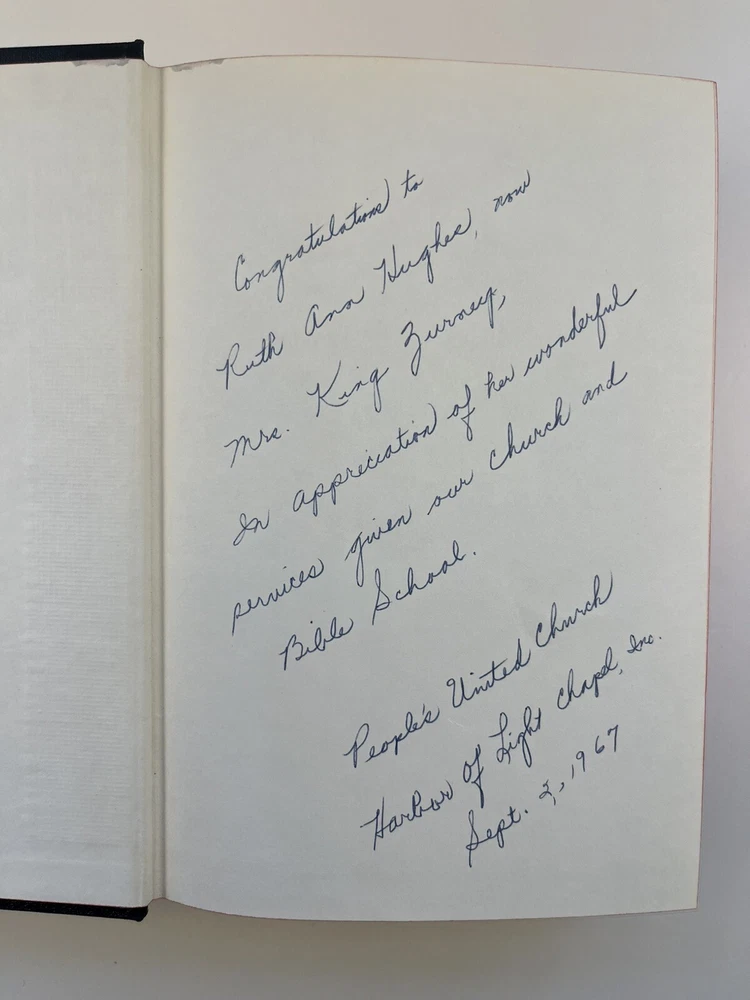 Congratulations to
Ruth Ann Hughes, now
Mrs. King Zurney,
In appreciation of her wonderful
services given our church and
Bible School.
People's United Church
Harbor Of Light Chapel, Inc.
Sept. 2, 1967